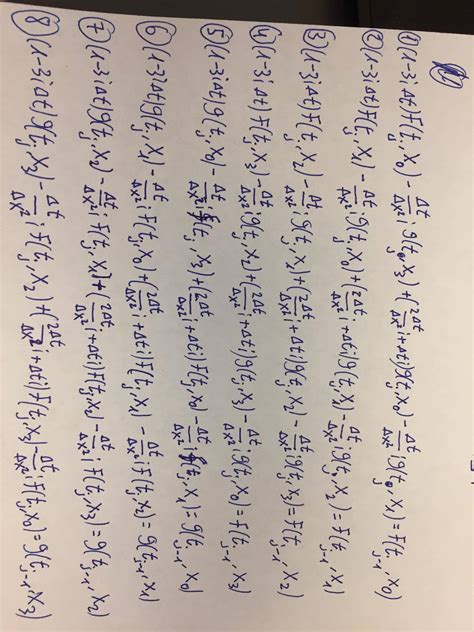 ① (1-3iΔt)f(t_j, x_0) - Δt/Δx² i g(t_j, x_3) + (2Δt/Δx² i + Δti)g(t_j, x_0) - Δt/Δx² i g(t_j, x_1) = f(t_{j-1}, x_0)
② (1-3iΔt)f(t_j, x_1) - Δt/Δx² i g(t_j, x_0) + (2Δt/Δx² i + Δti)g(t_j, x_1) - Δt/Δx² i g(t_j, x_2) = f(t_{j-1}, x_1)
③ (1-3iΔt)f(t_j, x_2) - Δt/Δx² i g(t_j, x_1) + (2Δt/Δx² i + Δti)g(t_j, x_2) - Δt/Δx² i g(t_j, x_3) = f(t_{j-1}, x_2)
④ (1-3iΔt)f(t_j, x_3) - Δt/Δx² i g(t_j, x_2) + (2Δt/Δx² i + Δti)g(t_j, x_3) - Δt/Δx² i g(t_j, x_0) = f(t_{j-1}, x_3)
⑤ (1-3iΔt)g(t_j, x_0) - Δt/Δx² i f(t_j, x_3) + (2Δt/Δx² i + Δti)f(t_j, x_0) - Δt/Δx² i f(t_j, x_1) = g(t_{j-1}, x_0)
⑥ (1-3iΔt)g(t_j, x_1) - Δt/Δx² i f(t_j, x_0) + (2Δt/Δx² i + Δti)f(t_j, x_1) - Δt/Δx² i f(t_j, x_2) = g(t_{j-1}, x_1)
⑦ (1-3iΔt)g(t_j, x_2) - Δt/Δx² i f(t_j, x_1) + (2Δt/Δx² i + Δti)f(t_j, x_2) - Δt/Δx² i f(t_j, x_3) = g(t_{j-1}, x_2)
⑧ (1-3iΔt)g(t_j, x_3) - Δt/Δx² i f(t_j, x_2) + (2Δt/Δx² i + Δti)f(t_j, x_3) - Δt/Δx² i f(t_j, x_0) = g(t_{j-1}, x_3)